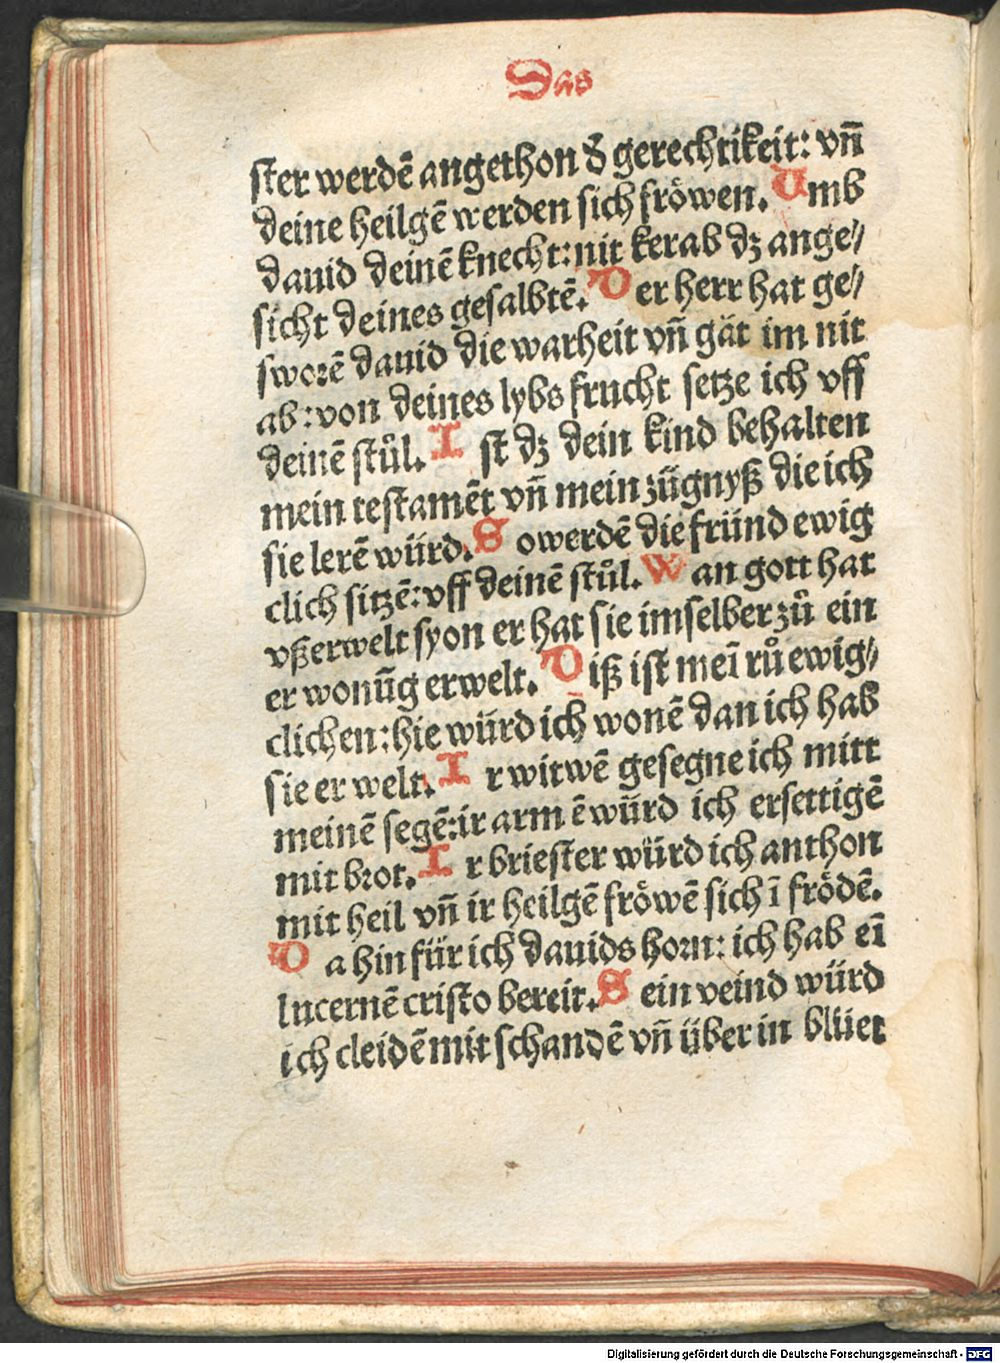 Das
ster werdē angethon d̄ gerechtikeit: vn̄
deine heilgē werden sich fröwen. Umb
dauid deinē knecht: nit kerab dz ange⸗
sicht deines gesalbtē. Der herr hat ge⸗
sworē dauid die warheit vn̄ gät im nit
ab: von deines lybs frucht setze ich vff
deinē stůl. Ist dz dein kind behalten
mein testamēt vn̄ mein zügnyß die ich
sie lerē würd. So werdē die fründ ewig
clich sitzē: vff deinē stůl. Wan gott hat
vßerwelt syon er hat sie im selber zů ein
er wonūg erwelt. Diß ist meī rů ewig⸗
clichen: hie würd ich wonē dan ich hab
sie er welt. Ir witwē gesegne ich mitt
meinē segē: ir arm ē würd ich ersettigē
mit brot. Ir briester würd ich anthon
mit heil vn̄ ir heilgē fröwē sich ī frödē.
Da hin für ich dauids horn: ich hab eī
lucernē cristo bereit. Sein veind würd
ich cleidē mit schandē vn̄ über in blüet
Digitalisierung gefördert durch die Deutsche Forschungsgemeinschaft - DFG